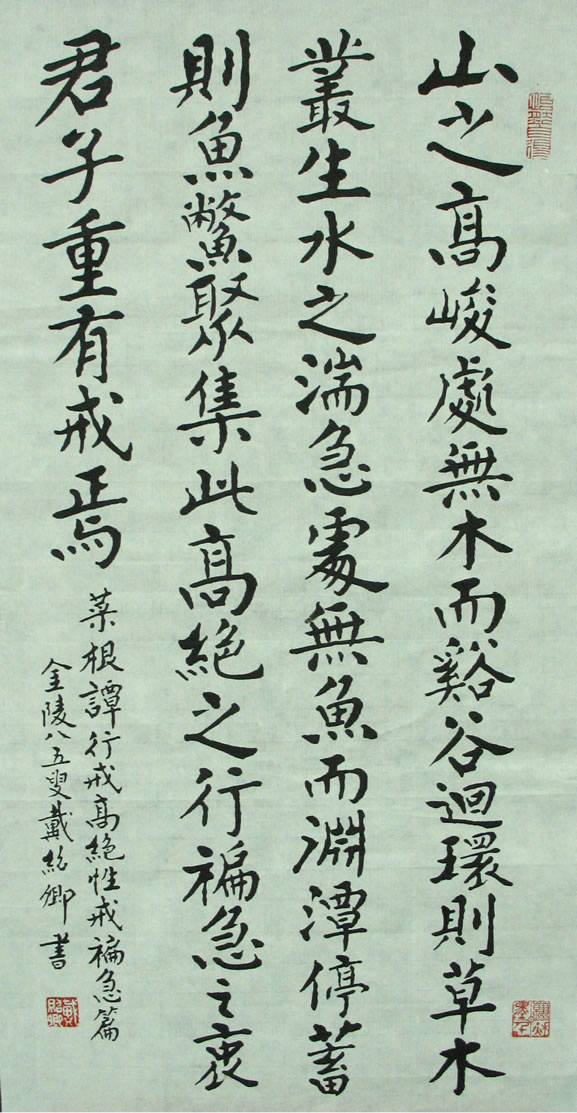 山之高峻處無木而谿谷迴環則草木
叢生水之湍急處無魚而淵潭停蓄
則魚鱉聚集此高絕之行褊急之衷
君子重有戒焉
菜根譚行戒高絕性戒褊急篇
金陵八五叟戴紹卿書